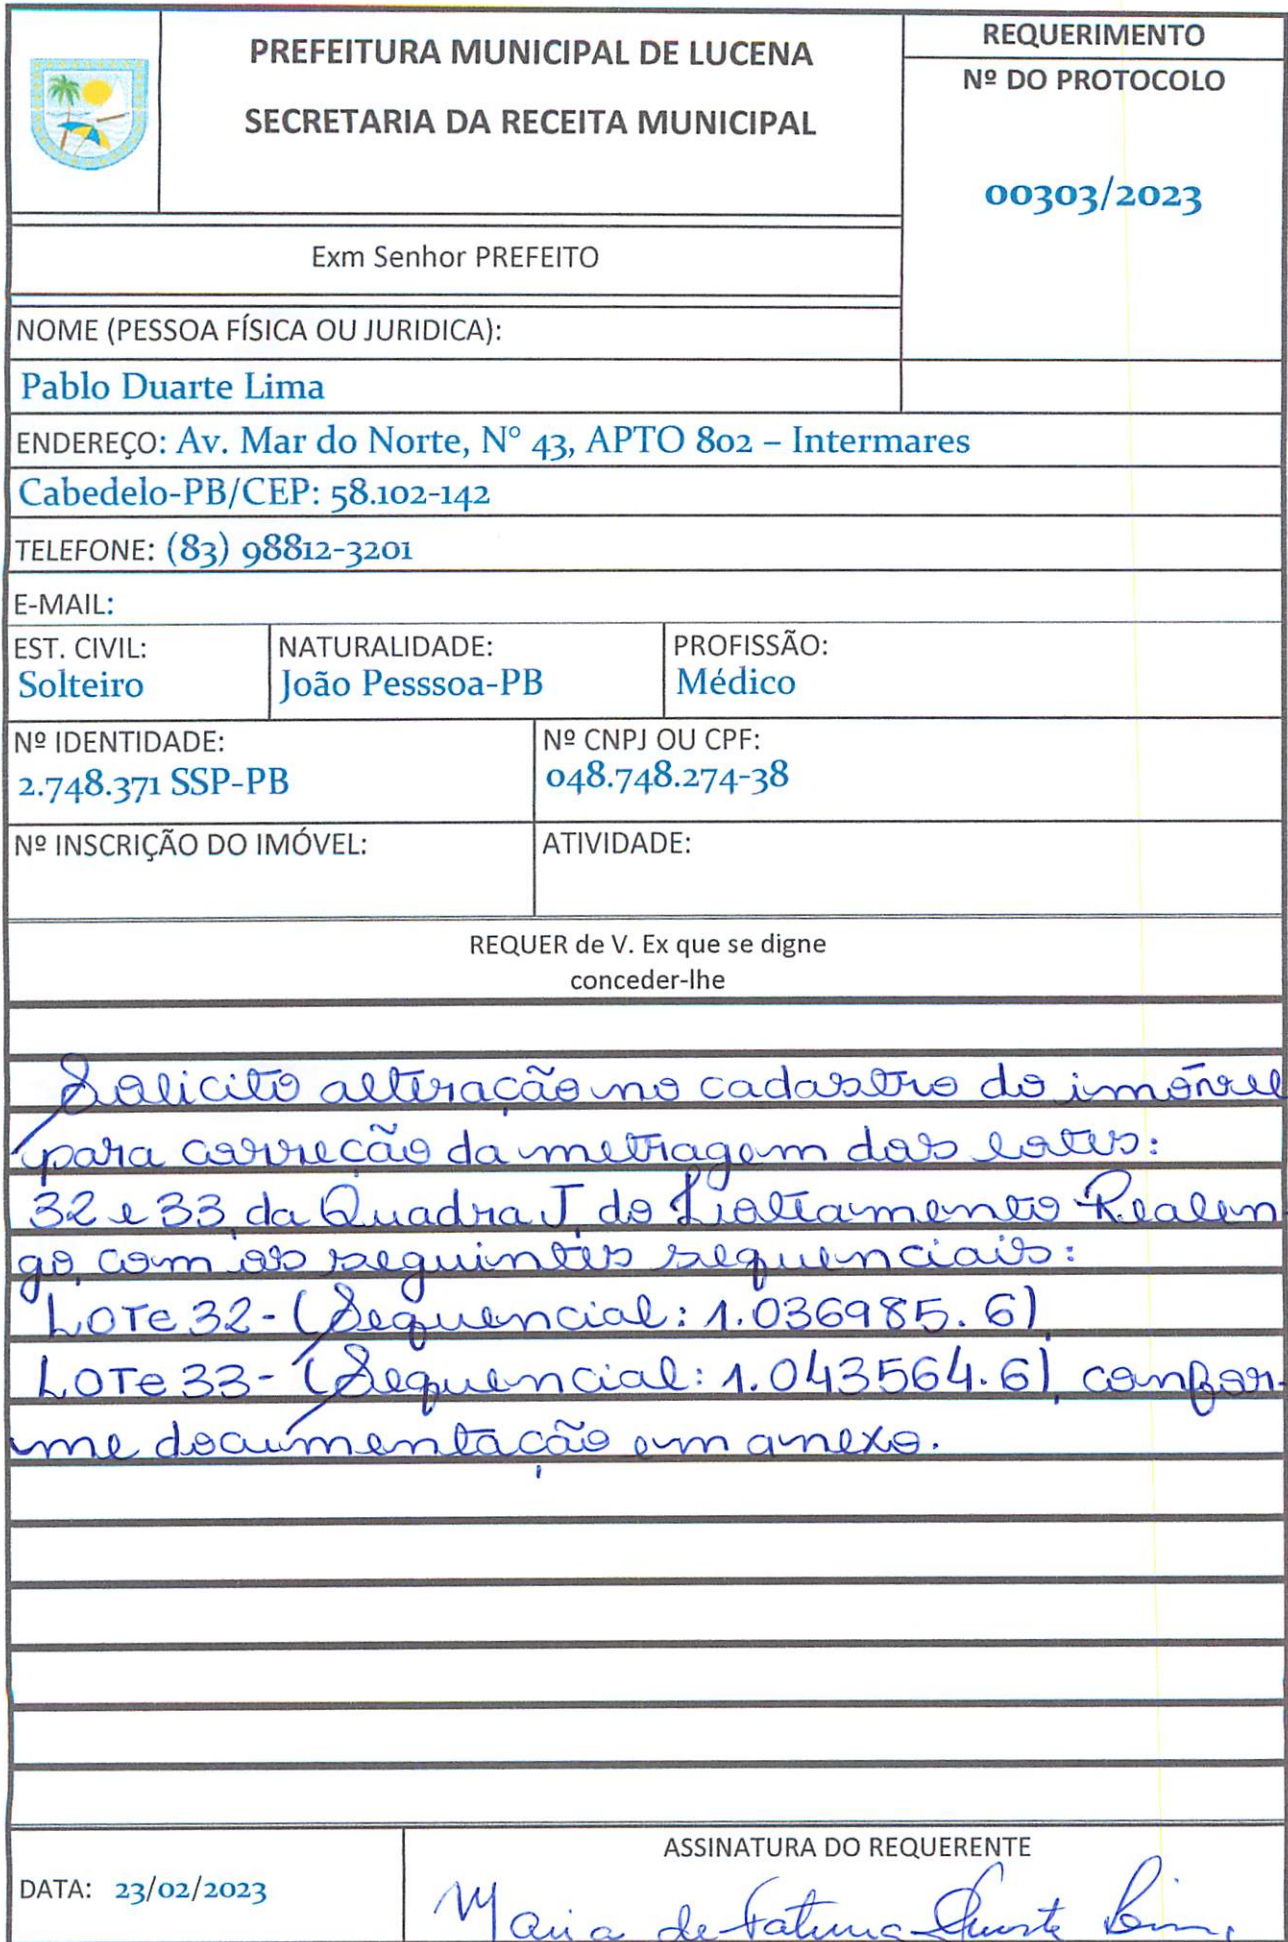 PREFEITURA MUNICIPAL DE LUCENA
SECRETARIA DA RECEITA MUNICIPAL
REQUERIMENTO
Nº DO PROTOCOLO
00303/2023
Exm Senhor PREFEITO
NOME (PESSOA FÍSICA OU JURIDICA):
Pablo Duarte Lima
ENDEREÇO: Av. Mar do Norte, N° 43, APTO 802 – Intermares
Cabedelo-PB/CEP: 58.102-142
TELEFONE: (83) 98812-3201
E-MAIL:
EST. CIVIL:
Solteiro
NATURALIDADE:
João Pesssoa-PB
PROFISSÃO:
Médico
Nº IDENTIDADE:
2.748.371 SSP-PB
Nº CNPJ OU CPF:
048.748.274-38
Nº INSCRIÇÃO DO IMÓVEL:
ATIVIDADE:
REQUER de V. Ex que se digne
conceder-lhe
Solicito alteração no cadastro do imóvel
para correção da metragem dos lotes:
32 e 33, da Quadra J, do Loteamento Realen
go, com os seguintes sequenciais:
LOTE 32 - (Sequencial: 1.036985.6),
LOTE 33 - (Sequencial: 1.043564.6), confor-
me documentação em anexo.
DATA: 23/02/2023
ASSINATURA DO REQUERENTE
Maria de Fatima Duarte Lima